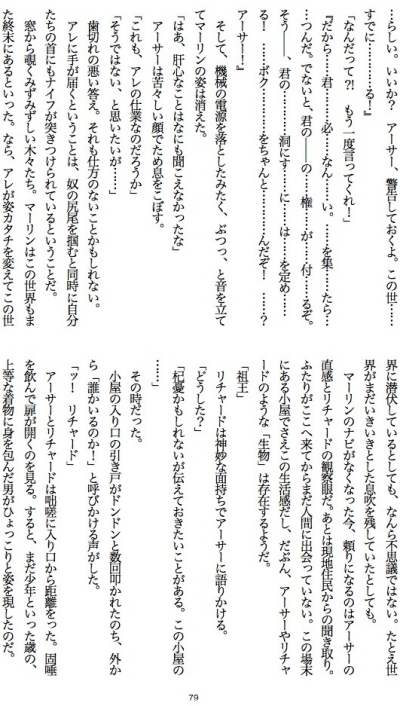 …らしい。いいか？　アーサー、警告しておくよ。この世……
すでに…………る！』
「なんだって?!　もう一度言ってくれ！」
『だから……君……必……なん……い。……を集……たら…
…つんだ。でないと、君の――の……権……が……付……るぞ。
そう――、君の……洞にす……に……は……を定め……
る！　……ボク…………をちゃんと…………んだぞ！　……？
アーサー！』
そして、機械の電源を落としたみたく、ぶつっ、と音を立て
てマーリンの姿は消えた。
「はあ、肝心なことはなにも聞こえなかったな」
アーサーは苦々しい顔でため息をこぼす。
「これも、アレの仕業なのだろうか」
「そうではない、と思いたいが……」
歯切れの悪い答え。それも仕方のないことかもしれない。
アレに手が届くということは、奴の尻尾を掴むと同時に自分
たちの首にもナイフが突きつけられているということだ。
窓から覗くみずみずしい木々たち。マーリンはこの世界もま
た終末にあるといった。なら、アレが姿カタチを変えてこの世
界に潜伏しているとしても、なんら不思議ではない。たとえ世
界がまだいきいきとした息吹を残していたとしても。
マーリンのナビがなくなった今、頼りになるのはアーサーの
直感とリチャードの観察眼だ。あとは現地住民からの聞き取り。
ふたりがここへ来てからまだ人間に出会っていない。この場末
にある小屋でさえこの生活感だし、たぶん、アーサーやリチャ
ードのような「生物」は存在するようだ。
「祖王」
リチャードは神妙な面持ちでアーサーに語りかける。
「どうした？」
「杞憂かもしれないが伝えておきたいことがある。この小屋の
……」
その時だった。
小屋の入り口の引き戸がドンドンと数回叩かれたのち、外か
ら「誰かいるのか！」と呼びかける声がした。
「ッ！　リチャード」
アーサーとリチャードは咄嗟に入り口から距離をった。固唾
を飲んで扉が開くのを見る。すると、まだ少年といった歳の、
上等な着物に身を包んだ男がひょっこりと姿を現したのだ。
79